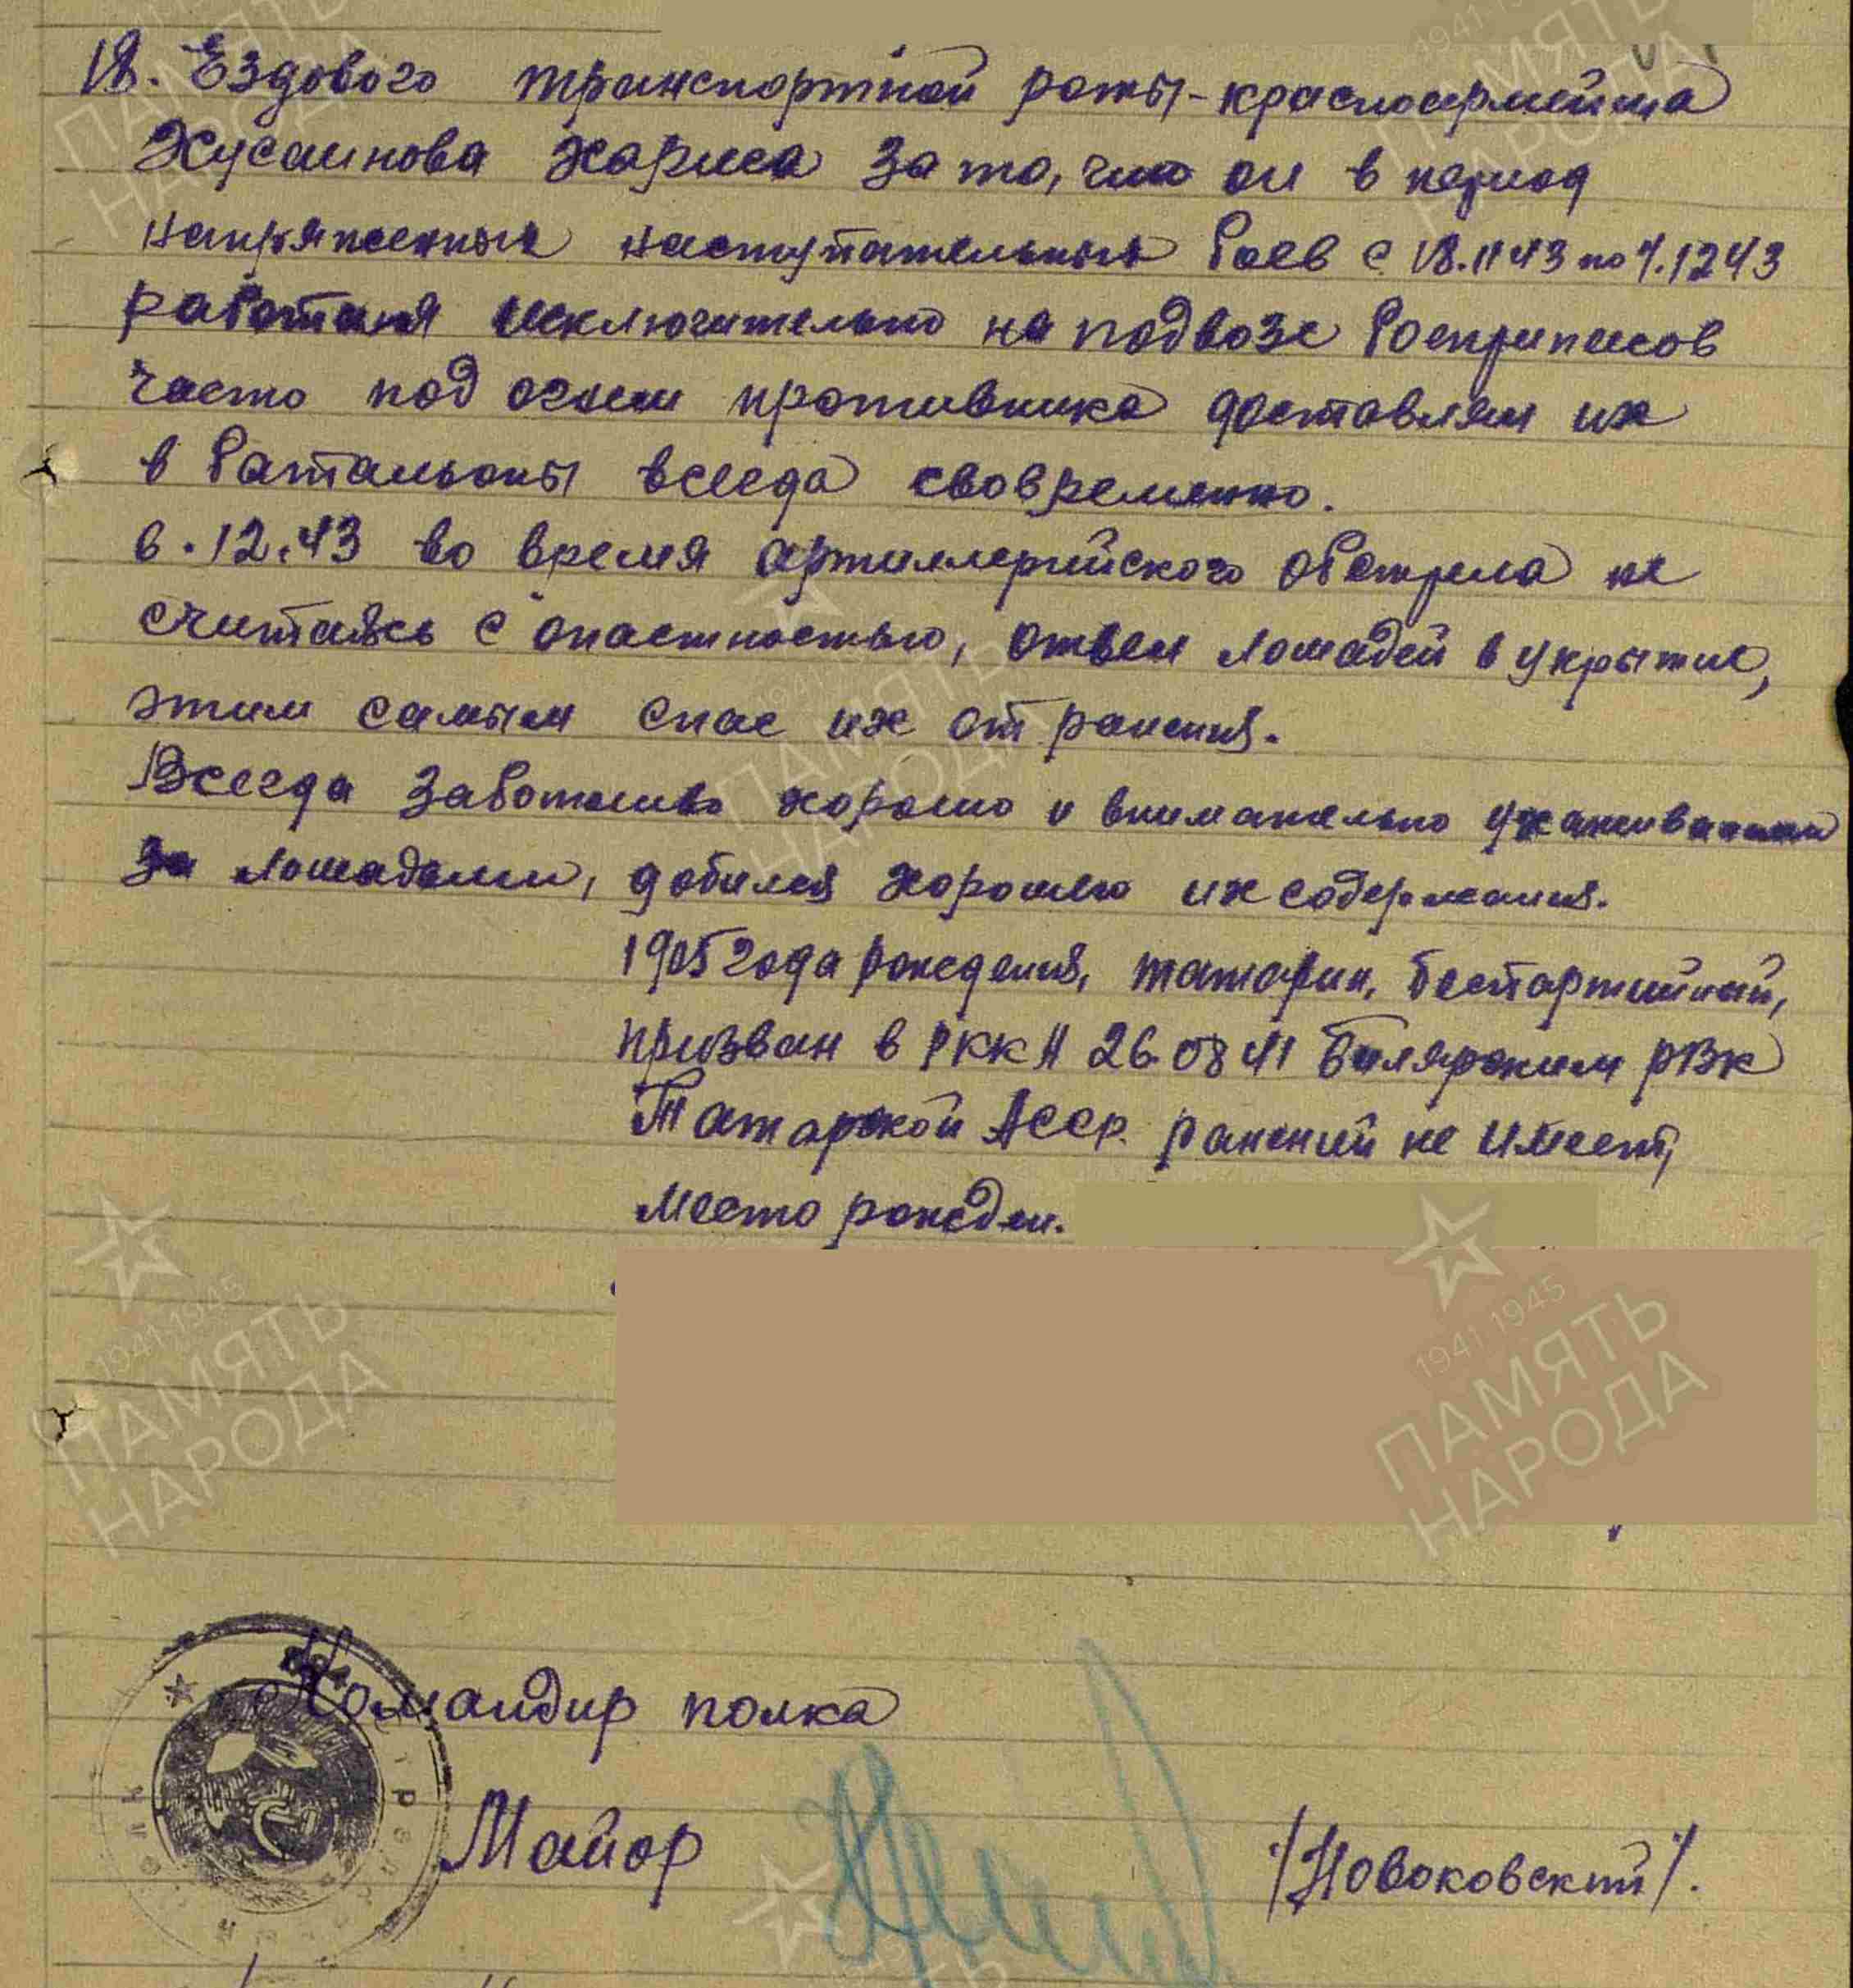 18. Ездового транспортной роты - красноармейца
Хусаинова Хариса за то, что он в период
напряженных наступательных боев с 18.11 43 по 7.12 43
работая исключительно на подвозе боеприпасов
часто под огнем противника доставлял их
в батальоны всегда своврeменно.
6.12.43 во время артиллерийского обстрела не
считаясь с опастностью, отвел лошадей в укрытие,
этим самым спас их от ранения.
Всегда заботливо хорошо и внимательно ухаживал
за лошадьми, добился хорошего их содержания.
1905 года рождения, татарин, беспартийный,
призван в РККА 26.08 41 Билярским РВК
Татарской АССР. ранений не имеет,
место рожден.
Командир полка
Майор
/Новоковский/.
ПАМЯТЬ
НАРОДА
ПАМЯТЬ
НАРОДА
1941 1945
ПАМЯТЬ
НАРОДА
1941 1945
ПАМЯТЬ
НАРОДА
1941 1945
ПАМЯТЬ
НАРОДА